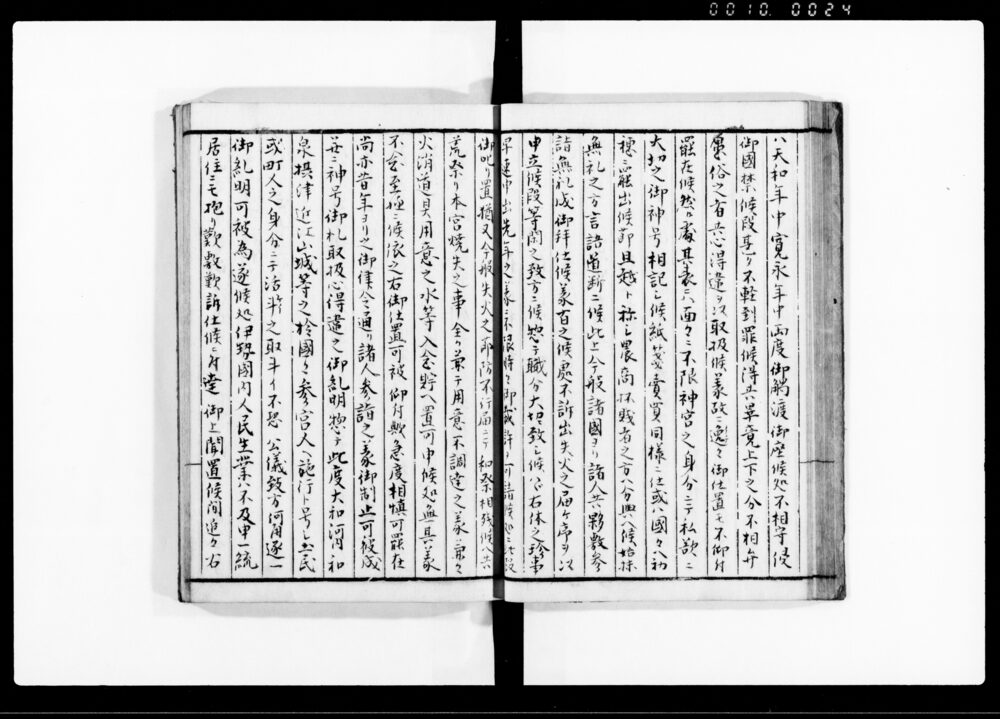 0010 0024
八天和年中寛永年中両度御觸渡御座候処不相守侵
御國禁候段甚タ不軽到罪候得共畢竟上下之分不相弁
愚俗之者共心得違ヲ以取扱候義故ニ逸々御仕置モ不仰付
罷在候然ル處其表ニハ面々ニ不限神宮之身分ニテ私欲ニ
大切之御神号相記シ候紙茂賣買同様ニ仕或ハ國々ヘ初
穂ニ罷出候節且越ト称シ農商杯賤者之方ヘ分與ヘ候始抹
無礼之方言語道断ニ候此上今般諸國ヨリ諸人共夥敷参
詣無礼成御拜仕候義有之候處不訴出失火之届ケ序ヲ以
申立候段等閑之致方ニ候惣テ職分大切ニ致シ候ハ右体之珍事
早速申出先年之
御叱リ置猶又今般失火之節防不行届ニヨリ
荒祭リ本宮焼失之事全ク兼テ用意不調達之義ニ兼々
火消道具用意之水等入念貯ヘ置可申候処無其義
不念至極ニ候依之右御仕置可被仰付興急度相慎可罷在
尚亦昔年ヨリ之御律令之通リ諸人参詣之義御制止可被成
并ニ神号御札取扱心得違之御糺明惣テ此度大和河内和
泉摂津近江山城等之於國々参宮人ヘ施行ト号シ土民
或町人之身分ニテ活斗之取斗イ不恐公儀致方何角逐一
御糺明可被為遂候処伊勢國内人民生業ハ不及申一統
居住ニモ抱リ歎敷歎訴仕候ニ付達御上聞置候間追々右